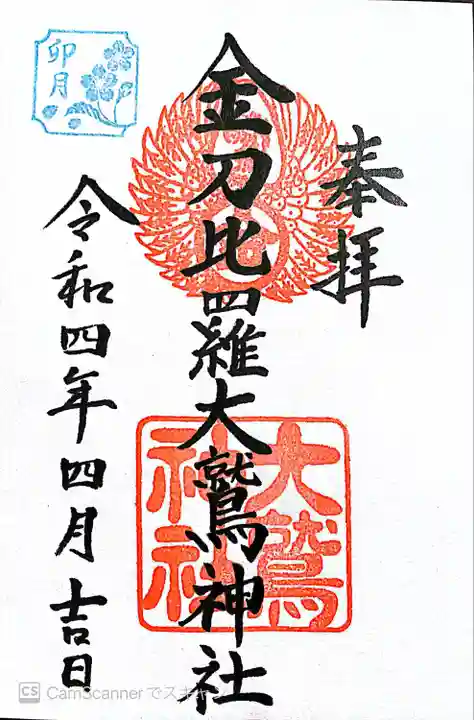 奉拝
金刀比羅大鷲神社
大鷲
神社
卯月
令和四年四月吉日
CS CamScannerでスキャン